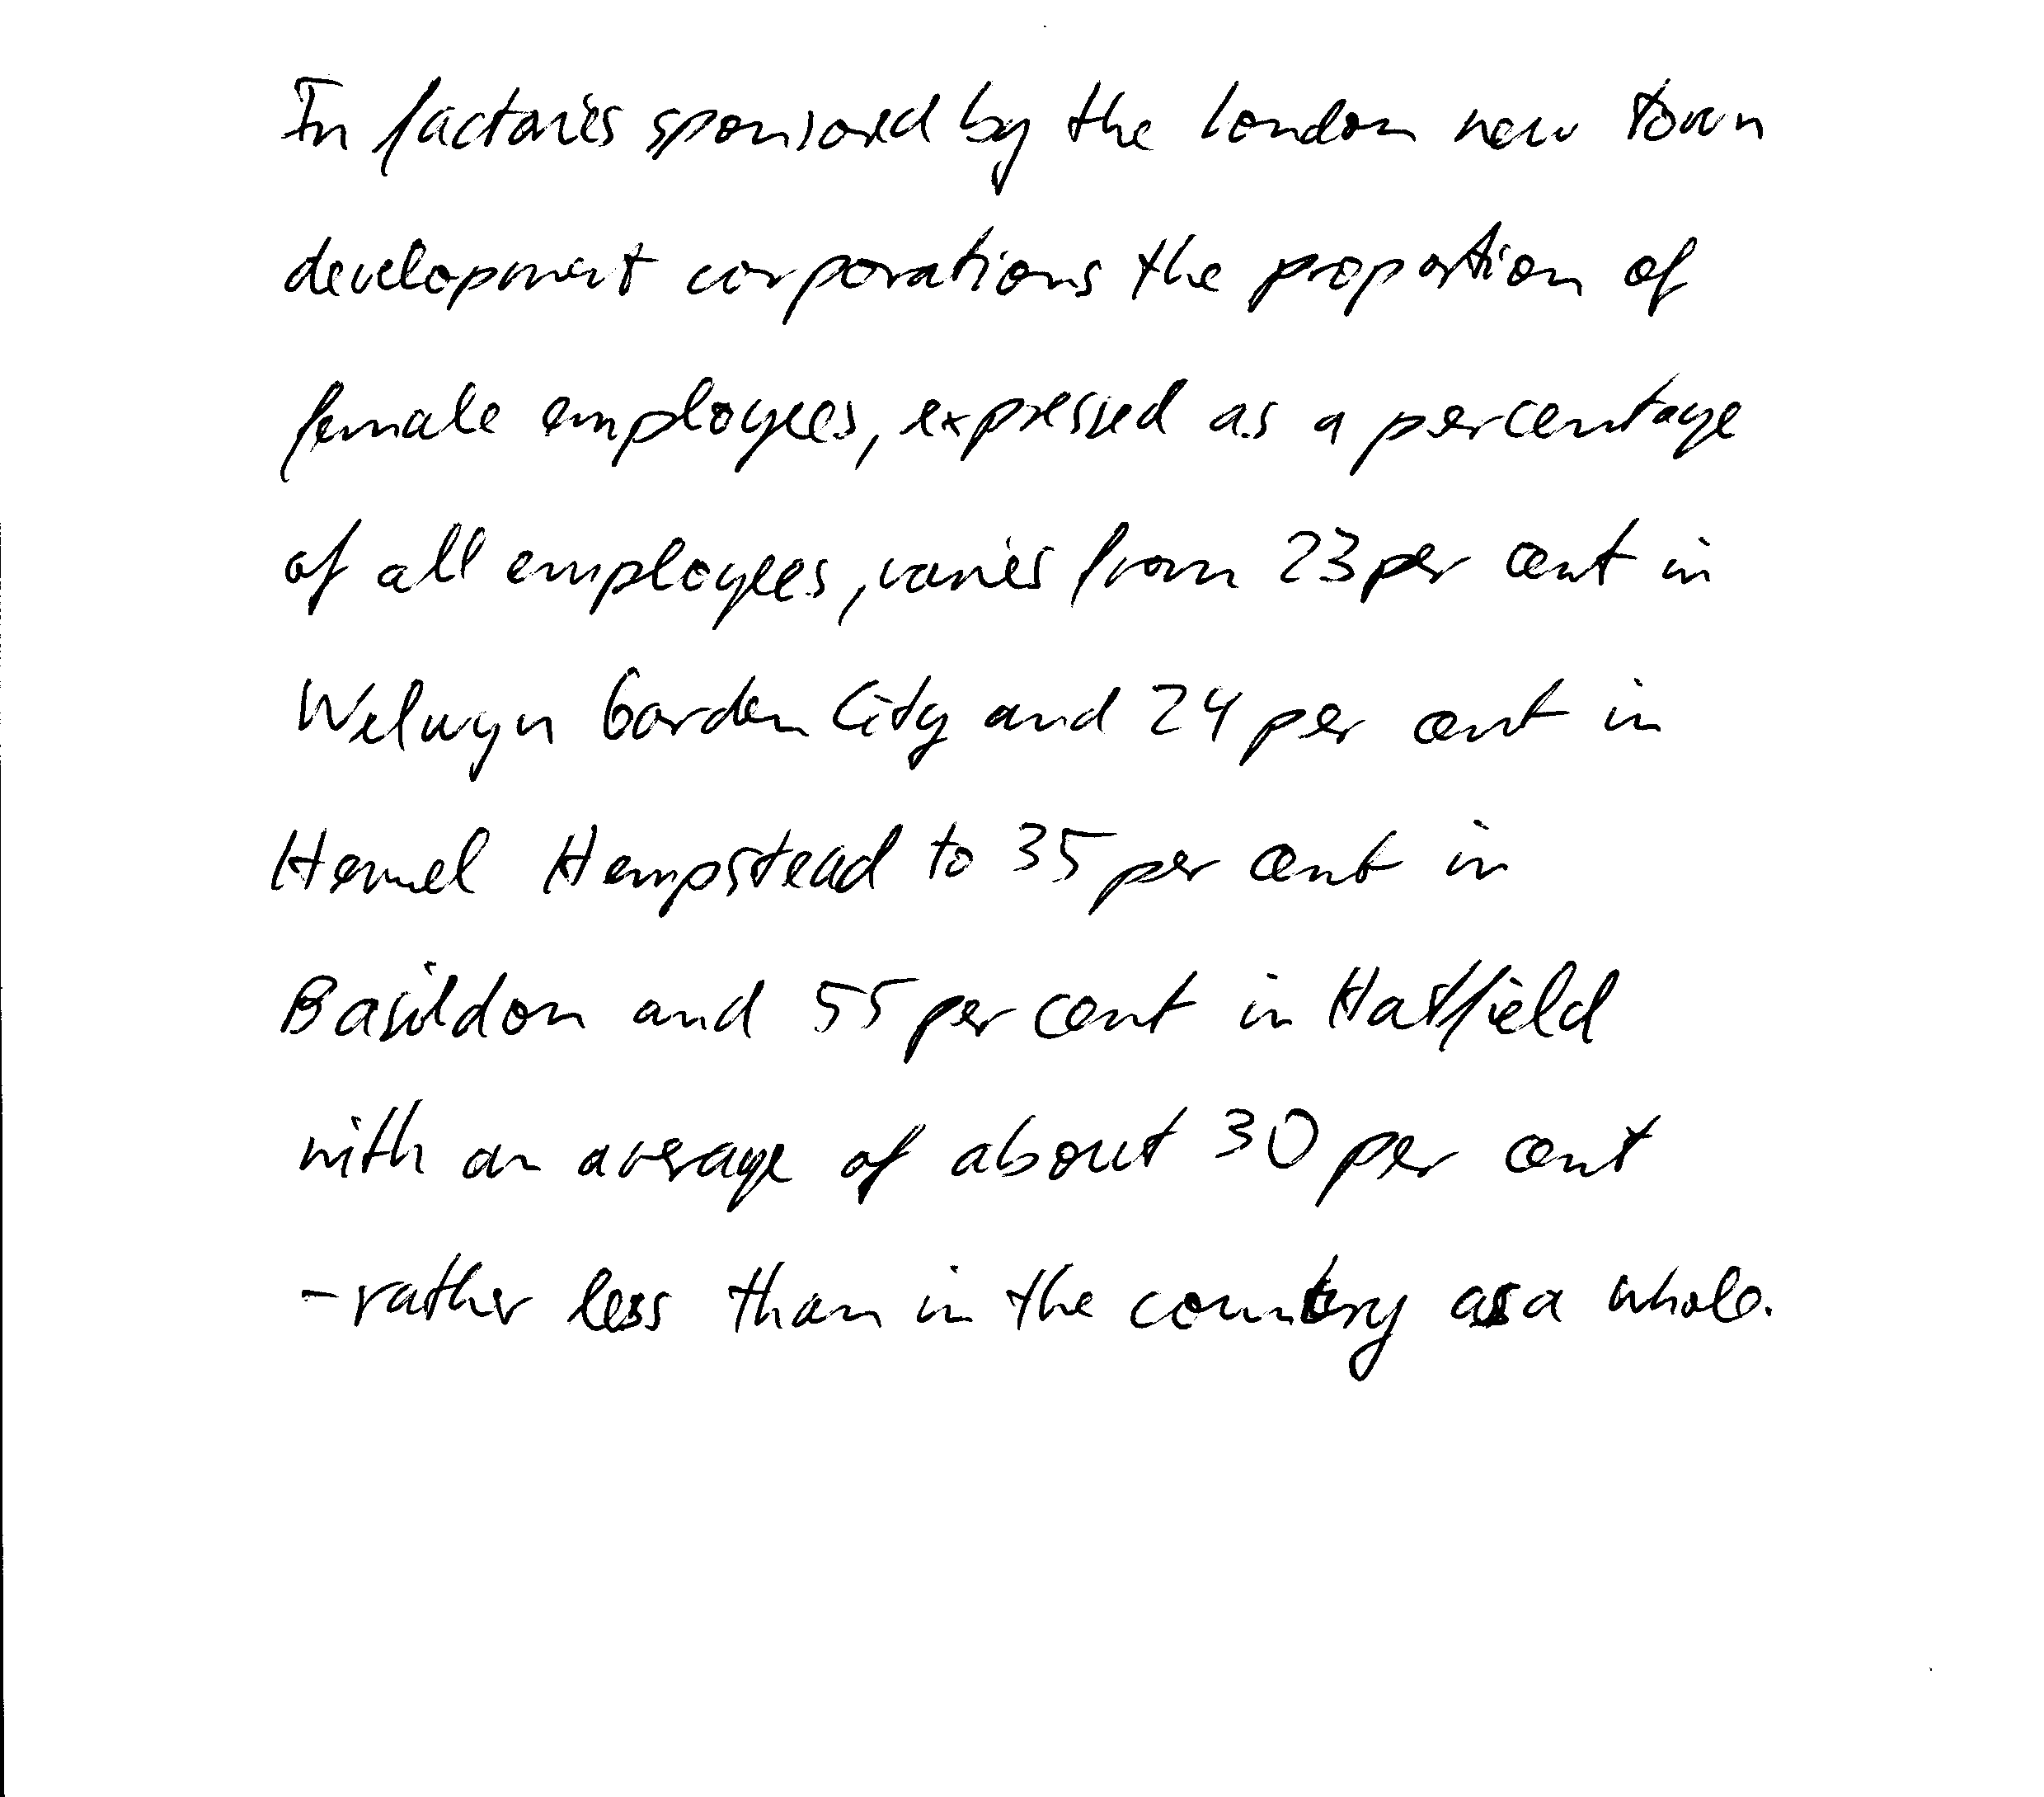 In factories sponsored by the London new town
development corporations the proportion of
female employees, expressed as a percentage
of all employees, varies from 23 per cent in
Welwyn Garden City and 24 per cent in
Hemel Hempstead to 35 per cent in
Basildon and 55 per cent in Hatfield
with an average of about 30 per cent
- rather less than in the country as a whole.